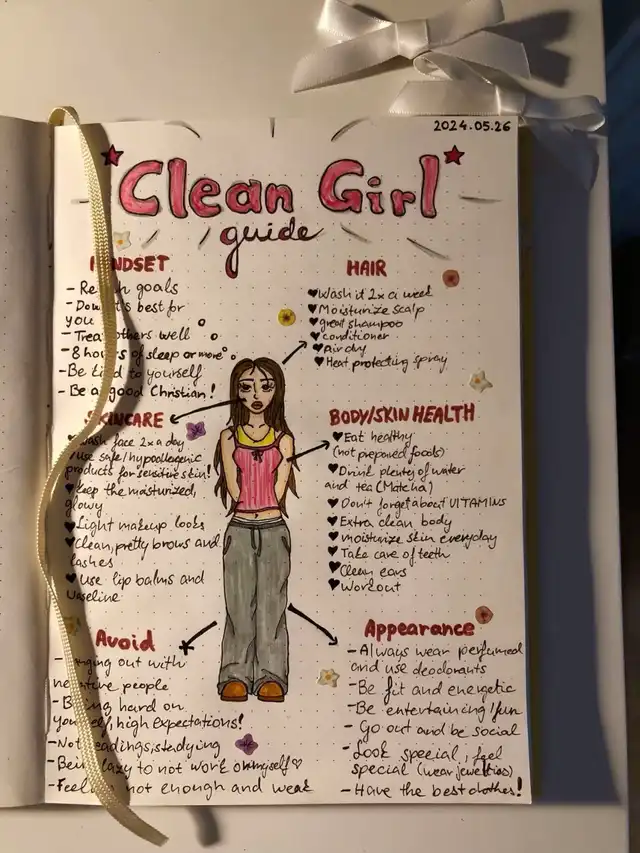 2024.05.26
Clean Girl
guide
MINDSET
- Reach goals
- Dow
t's best for
you
- Treat others well
- 8 hours of sleep or more
- Be kind to yourself
- Be a good Christian!
HAIR
Wash it 2x a week
Moisturize scalp
great shampoo
conditioner
Air dry
Heat protecting spray
SKINCARE
Wash face 2x a day
use safe/hypoallergenic
products for sensitive skin!
Keep the moisturized,
glowy
Light makeup looks
Clean, pretty brows and
lashes
Use lip balms and
vaseline
BODY/SKIN HEALTH
Eat healthy
(not prepared foods)
Drink plenty of water
and tea (Matcha)
Don't forget about VITAMINS
Extra clean body
moisturize skin everyday
Take care of teeth
Clean ears
Workout
Avoid
- Hanging out with
negative people
- Being hard on
yourself, high expectations!
- Not readings, studying
- Being lazy to not work on myself
- Feeling not enough and weak
Appearance
- Always wear perfumed
and use deodorants
- Be fit and energetic
- Be entertaining/fun
- Go out and be social
- Look special, feel
special (wear jewellries)
- Have the best clothes!